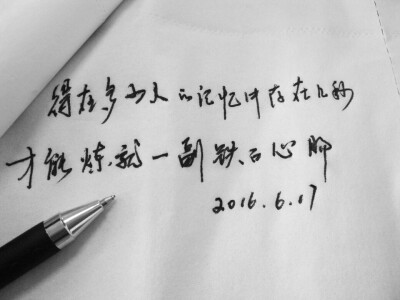 得在多少人的记忆中存在几秒
才能炼就一副铁石心肠
2016.6.17